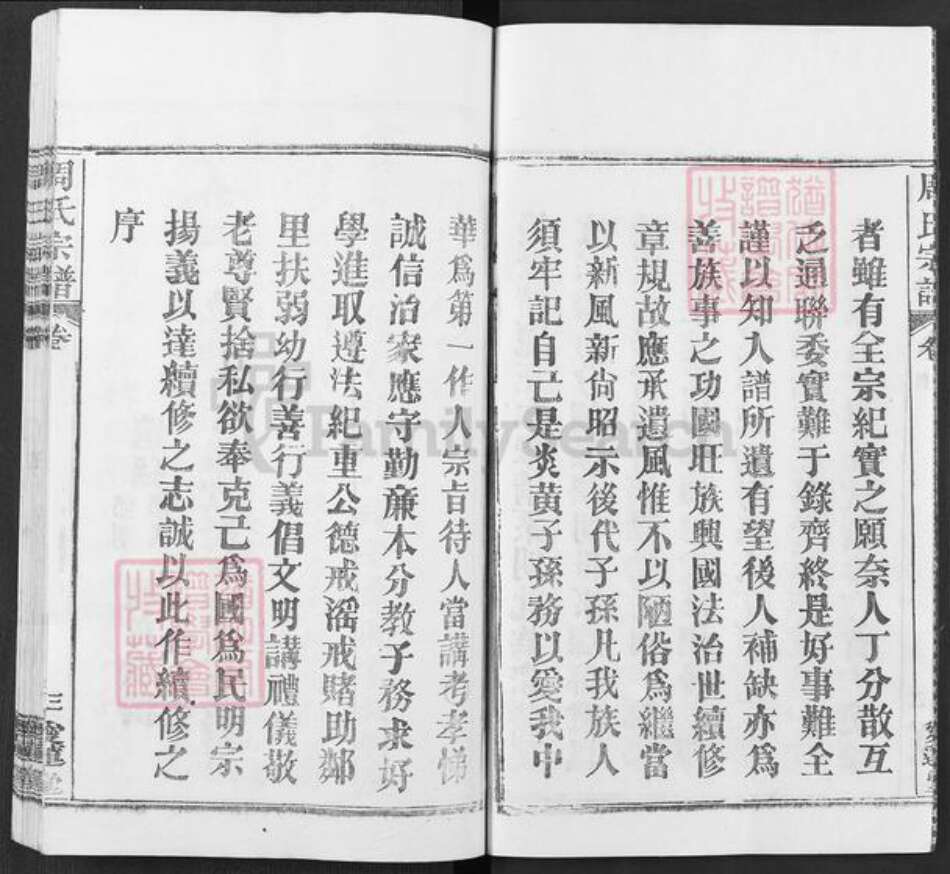 周氏宗譜 卷
者雖有全宗紀實之願奈人丁分散互
乏通聯委實難于錄齊終是好事難全
謹以知入譜所遺有望後人補缺亦為
善族事之功國旺族興國法治世續修
章規故應承遺風惟不以陋俗為繼當
以新風新尙昭示後代子孫凡我族人
須牢記自己是炎黃子孫務以愛我中
華為第一作人宗旨待人當講考孝悌
誠信治家應守勤廉本分教子務求好
學進取遵法紀重公德戒滛戒賭助鄰
里扶弱幼行善行義倡文明講禮儀敬
老尊賢捨私欲奉克己為國為民明宗
揚義以達續修之志誠以此作續修之
序
周氏宗譜 卷
三
FamilySearch